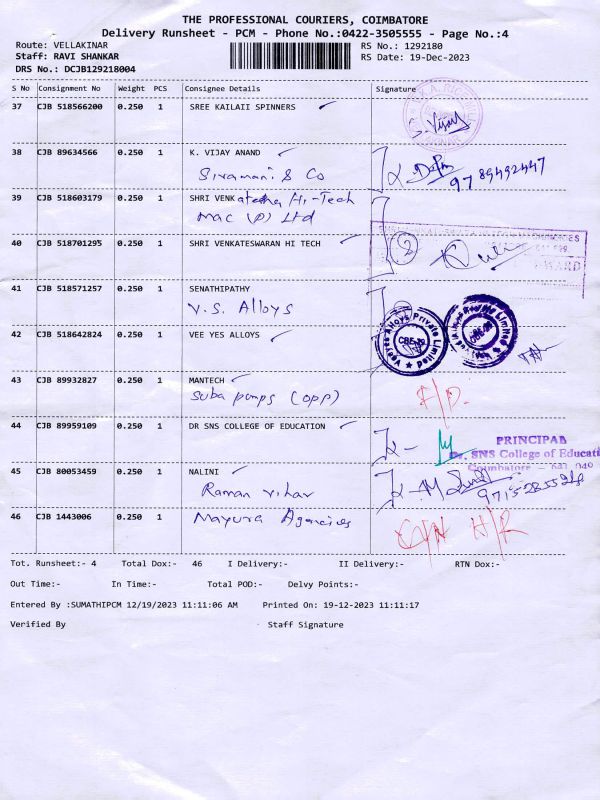 THE PROFESSIONAL COURIERS, COIMBATORE
Delivery Runsheet - PCM - Phone No.:0422-3505555 - Page No.:4
Route: VELLAKINAR RS No.: 1292180
Staff: RAVI SHANKAR RS Date: 19-Dec-2023
DRS No.: DCJB129218004
S No Consignment No Weight PCS Consignee Details Signature
37 CJB 518566200 0.250 1 SREE KAILAII SPINNERS
S. Vijay
38 CJB 89634566 0.250 1 K. VIJAY ANAND
Sivamani & Co 9789492447
39 CJB 518603179 0.250 1 SHRI VENKatesha Hi-Tech
Mac (P) Ltd
40 CJB 518701295 0.250 1 SHRI VENKATESWARAN HI TECH
2
41 CJB 518571257 0.250 1 SENATHIPATHY
V.S. Alloys
42 CJB 518642824 0.250 1 VEE YES ALLOYS
Veeyes Alloys Private Limited
43 CJB 89932827 0.250 1 MANTECH
Suba pumps (opp)
44 CJB 89959109 0.250 1 DR SNS COLLEGE OF EDUCATION
PRINCIPAL
Dr. SNS College of Educati
Coimbatore - 641 049
45 CJB 80053459 0.250 1 NALINI
Raman Vihar
46 CJB 1443006 0.250 1 Mayura Agencies
Tot. Runsheet:- 4 Total Dox:- 46 I Delivery:- II Delivery:- RTN Dox:-
Out Time:- In Time:- Total POD:- Delvy Points:-
Entered By :SUMATHIPCM 12/19/2023 11:11:06 AM Printed On: 19-12-2023 11:11:17
Verified By Staff Signature